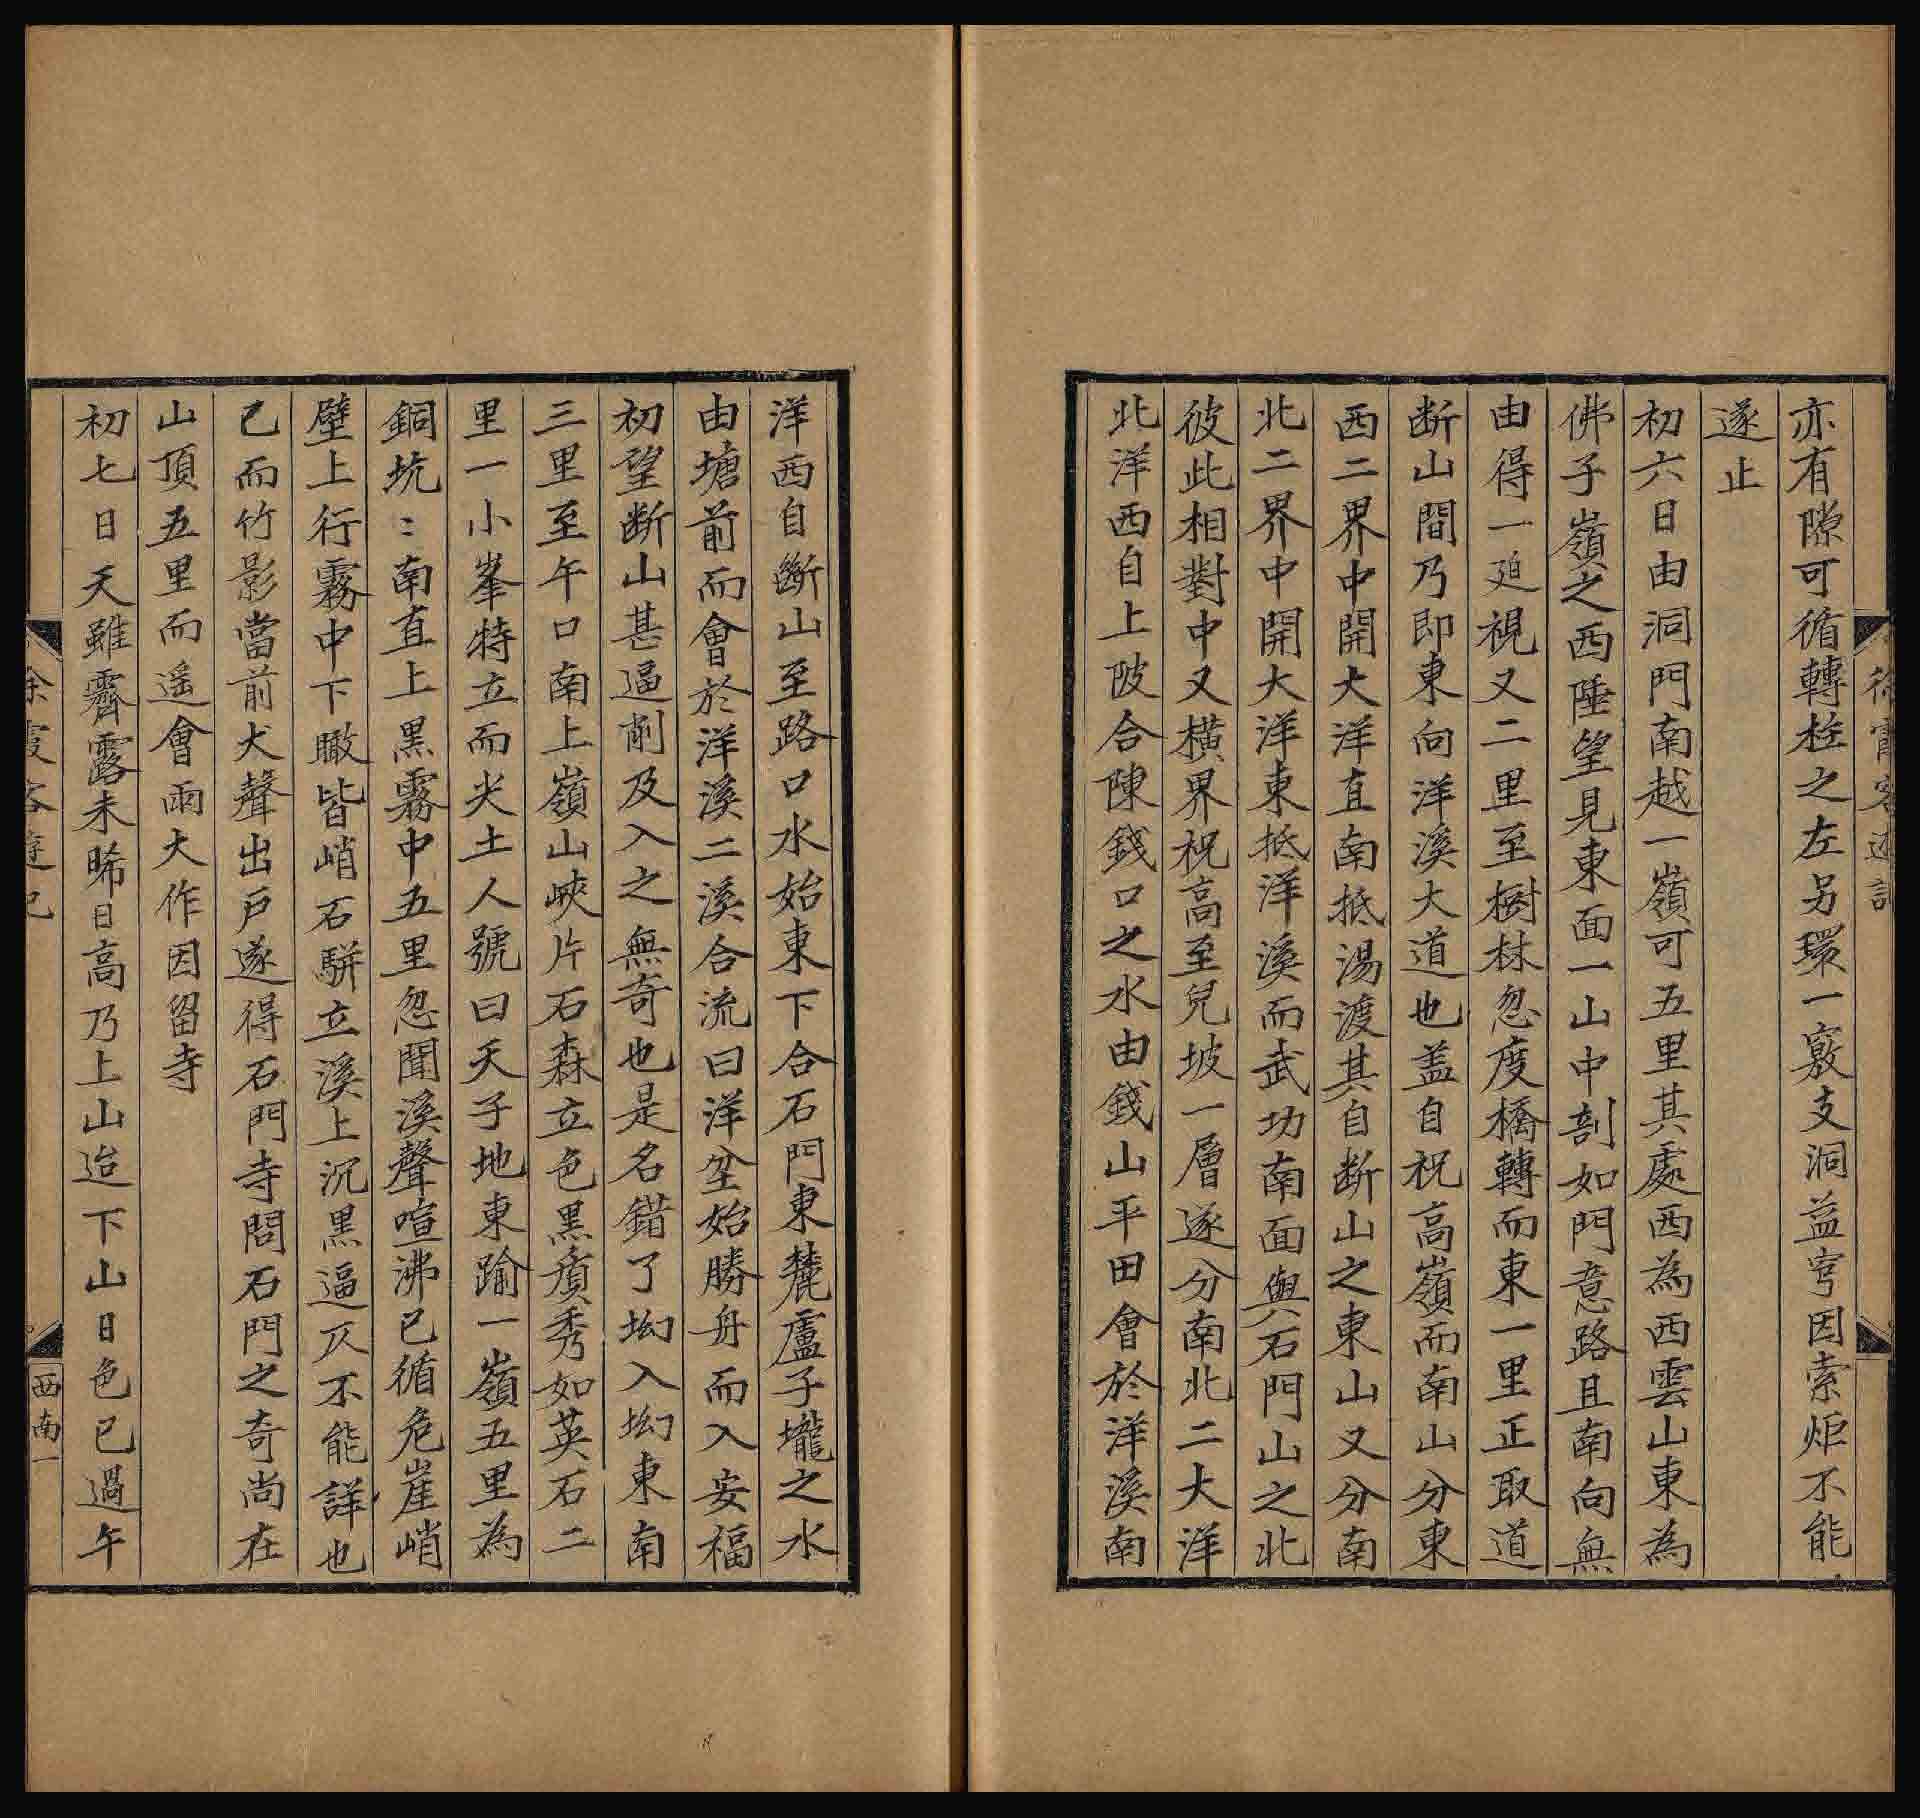 亦有隙可循轉柱之左另環一竅支洞益穹因索炬不能
遂止
初六日由洞門南越一嶺可五里其處西為西雲山東為
佛子嶺之西陲望見東面一山中剖如門意路且南向無
由得一廹視又二里至樹林忽度橋轉而東一里正取道
断山間乃即東向洋溪大道也盖自祝高嶺而南山分東
西二界中開大洋直南抵湯渡其自断山之東山又分南
北二界中開大洋東抵洋溪而武功南面與石門山之北
彼此相對中又橫界祝高至兒坡一層遂分南北二大洋
北洋西自上陂合陳錢口之水由錢山平田會於洋溪南
洋西自斷山至路口水始東下合石門東麓盧子壠之水
由塘前而會於洋溪二溪合流曰洋坌始勝舟而入安福
初望断山甚逼削及入之無奇也是名錯了坳入坳東南
三里至午口南上嶺山峽片石森立色黑質秀如英石二
里一小峯特立而尖土人號曰天子地東踰一嶺五里為
銅坑〻南直上黑霧中五里忽聞溪聲喧沸已循危崖峭
壁上行霧中下瞰皆峭石駢立溪上沉黑逼仄不能詳也
已而竹影當前犬聲出戶遂得石門寺問石門之奇尚在
山頂五里而遥會雨大作因留寺
初七日天雖霽露未晞日高乃上山迨下山日色已過午
西南一